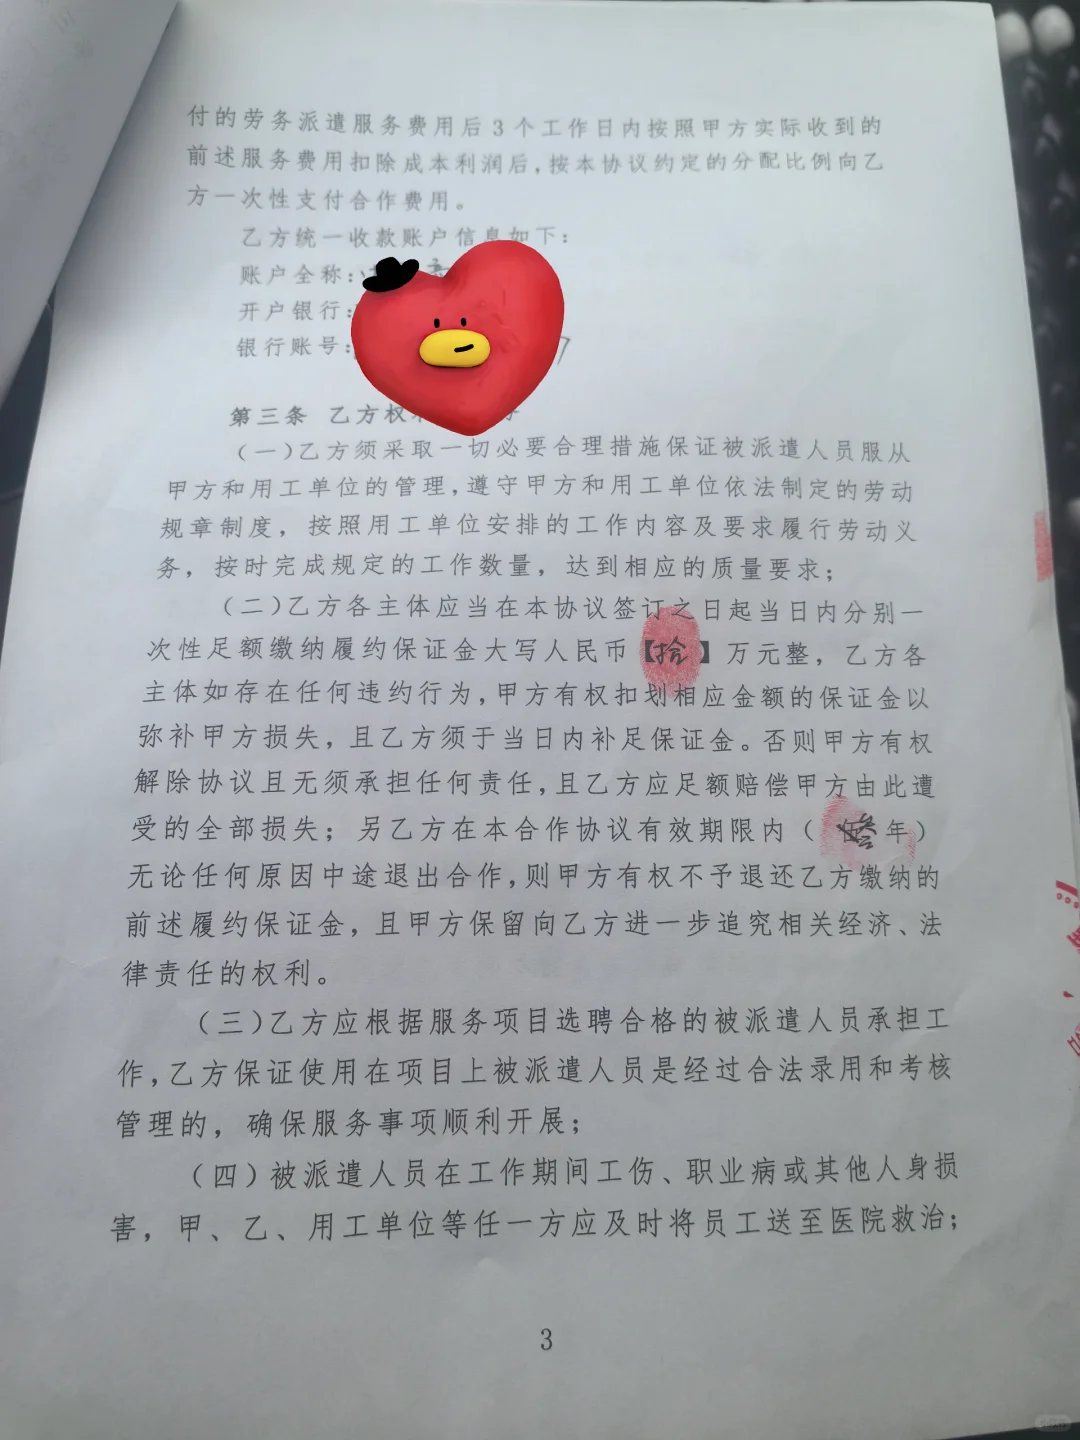 付的劳务派遣服务费用后3个工作日内按照甲方实际收到的
前述服务费用扣除成本利润后,按本协议约定的分配比例向乙
方一次性支付合作费用。
乙方统一收款账户信息如下:
账户全称:
开户银行:
银行账号:
第三条 乙方权
(一)乙方须采取一切必要合理措施保证被派遣人员服从
甲方和用工单位的管理,遵守甲方和用工单位依法制定的劳动
规章制度，按照用工单位安排的工作内容及要求履行劳动义
务，按时完成规定的工作数量，达到相应的质量要求；
(二)乙方各主体应当在本协议签订之日起当日内分别一
次性足额缴纳履约保证金大写人民币【拾】万元整，乙方各
主体如存在任何违约行为,甲方有权扣划相应金额的保证金以
弥补甲方损失，且乙方须于当日内补足保证金。否则甲方有权
解除协议且无须承担任何责任,且乙方应足额赔偿甲方由此遭
受的全部损失；另乙方在本合作协议有效期限内（叁年）
无论任何原因中途退出合作,则甲方有权不予退还乙方缴纳的
前述履约保证金，且甲方保留向乙方进一步追究相关经济、法
律责任的权利。
(三)乙方应根据服务项目选聘合格的被派遣人员承担工
作,乙方保证使用在项目上被派遣人员是经过合法录用和考核
管理的，确保服务事项顺利开展；
(四)被派遣人员在工作期间工伤、职业病或其他人身损
害，甲、乙、用工单位等任一方应及时将员工送至医院救治；
3